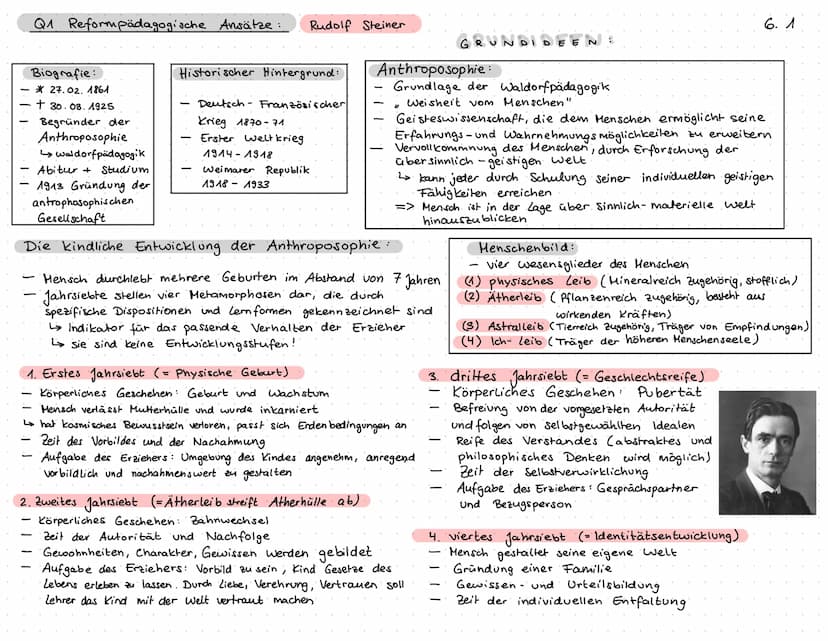 Q1 Reformpädagogische Ansätze: Rudolf Steiner
6.1
GRUNDIDEEN:
Biografie:
- * 27.02.1861
- † 30.03.1925
- Begründer der
Anthroposophie
↳ Waldorfpädagogik
- Abitur + Studium
- 1913 Gründung der
antrophosophischen
Gesellschaft
Historischer Hintergrund:
- Deutsch-Französischer
Krieg 1870-71
- Erster Weltkrieg
1914-1918
- Weimarer Republik
1918-1933
Anthroposophie:
- Grundlage der Waldorfpädagogik
- „Weisheit vom Menschen"
- Geisteswissenschaft, die dem Menschen ermöglicht seine
Erfahrungs- und Wahrnehmungsmöglichkeiten zu erweitern
- Vervollkommnung des Menschen, durch Erforschung der
übersinnlich-geistigen Welt
↳ kann jeder durch Schulung seiner individuellen geistigen
Fähigkeiten erreichen
=> Mensch ist in der Lage über sinnlich-materielle Welt
hinauszublicken
Die kindliche Entwicklung der Anthroposophie:
- Mensch durchlebt mehrere Geburten im Abstand von 7 Jahren
- Jahrsiebte stellen vier Metamorphosen dar, die durch
spezifische Dispositionen und Lernformen gekennzeichnet sind
↳ Indikator für das passende Verhalten der Erzieher
↳ sie sind keine Entwicklungsstufen!
Menschenbild:
- vier Wesensglieder des Menschen
(1) physisches Leib (Mineralreich zugehörig, stofflich)
(2) Ätherleib (Pflanzenreich zugehörig, besteht aus
wirkenden Kräften)
(3) Astralleib (Tierreich zugehörig, Träger von Empfindungen)
(4) Ich-Leib (Träger der höheren Menschenseele)
1. Erstes Jahrsiebt (= Physische Geburt)
- Körperliches Geschehen: Geburt und Wachstum
- Mensch verlässt Mutterhülle und wurde inkarniert
↳ hat kosmisches Bewusstsein verloren, passt sich Erdenbedingungen an
- Zeit des Vorbildes und der Nachahmung
- Aufgabe des Erziehers: Umgebung des Kindes angenehm, anregend
vorbildlich und nachahmenswert zu gestalten
2. zweites Jahrsiebt (= Ätherleib streift Ätherhülle ab)
- Körperliches Geschehen: Zahnwechsel
- Zeit der Autorität und Nachfolge
- Gewohnheiten, Charakter, Gewissen werden gebildet
- Aufgabe des Erziehers: Vorbild zu sein, Kind Gesetze des
Lebens erleben zu lassen. Durch Liebe, Verehrung, Vertrauen soll
Lehrer das Kind mit der Welt vertraut machen
3. drittes Jahrsiebt (= Geschlechtsreife)
- Körperliches Geschehen: Pubertät
- Befreiung von der vorgesetzten Autorität
und folgen von selbstgewählten Idealen
- Reife des Verstandes (abstraktes und
philosophisches Denken wird möglich)
- Zeit der Selbstverwirklichung
- Aufgabe des Erziehers: Gesprächspartner
und Bezugsperson
4. viertes Jahrsiebt (= Identitätsentwicklung)
- Mensch gestaltet seine eigene Welt
- Gründung einer Familie
- Gewissen- und Urteilsbildung
- Zeit der individuellen Entfaltung